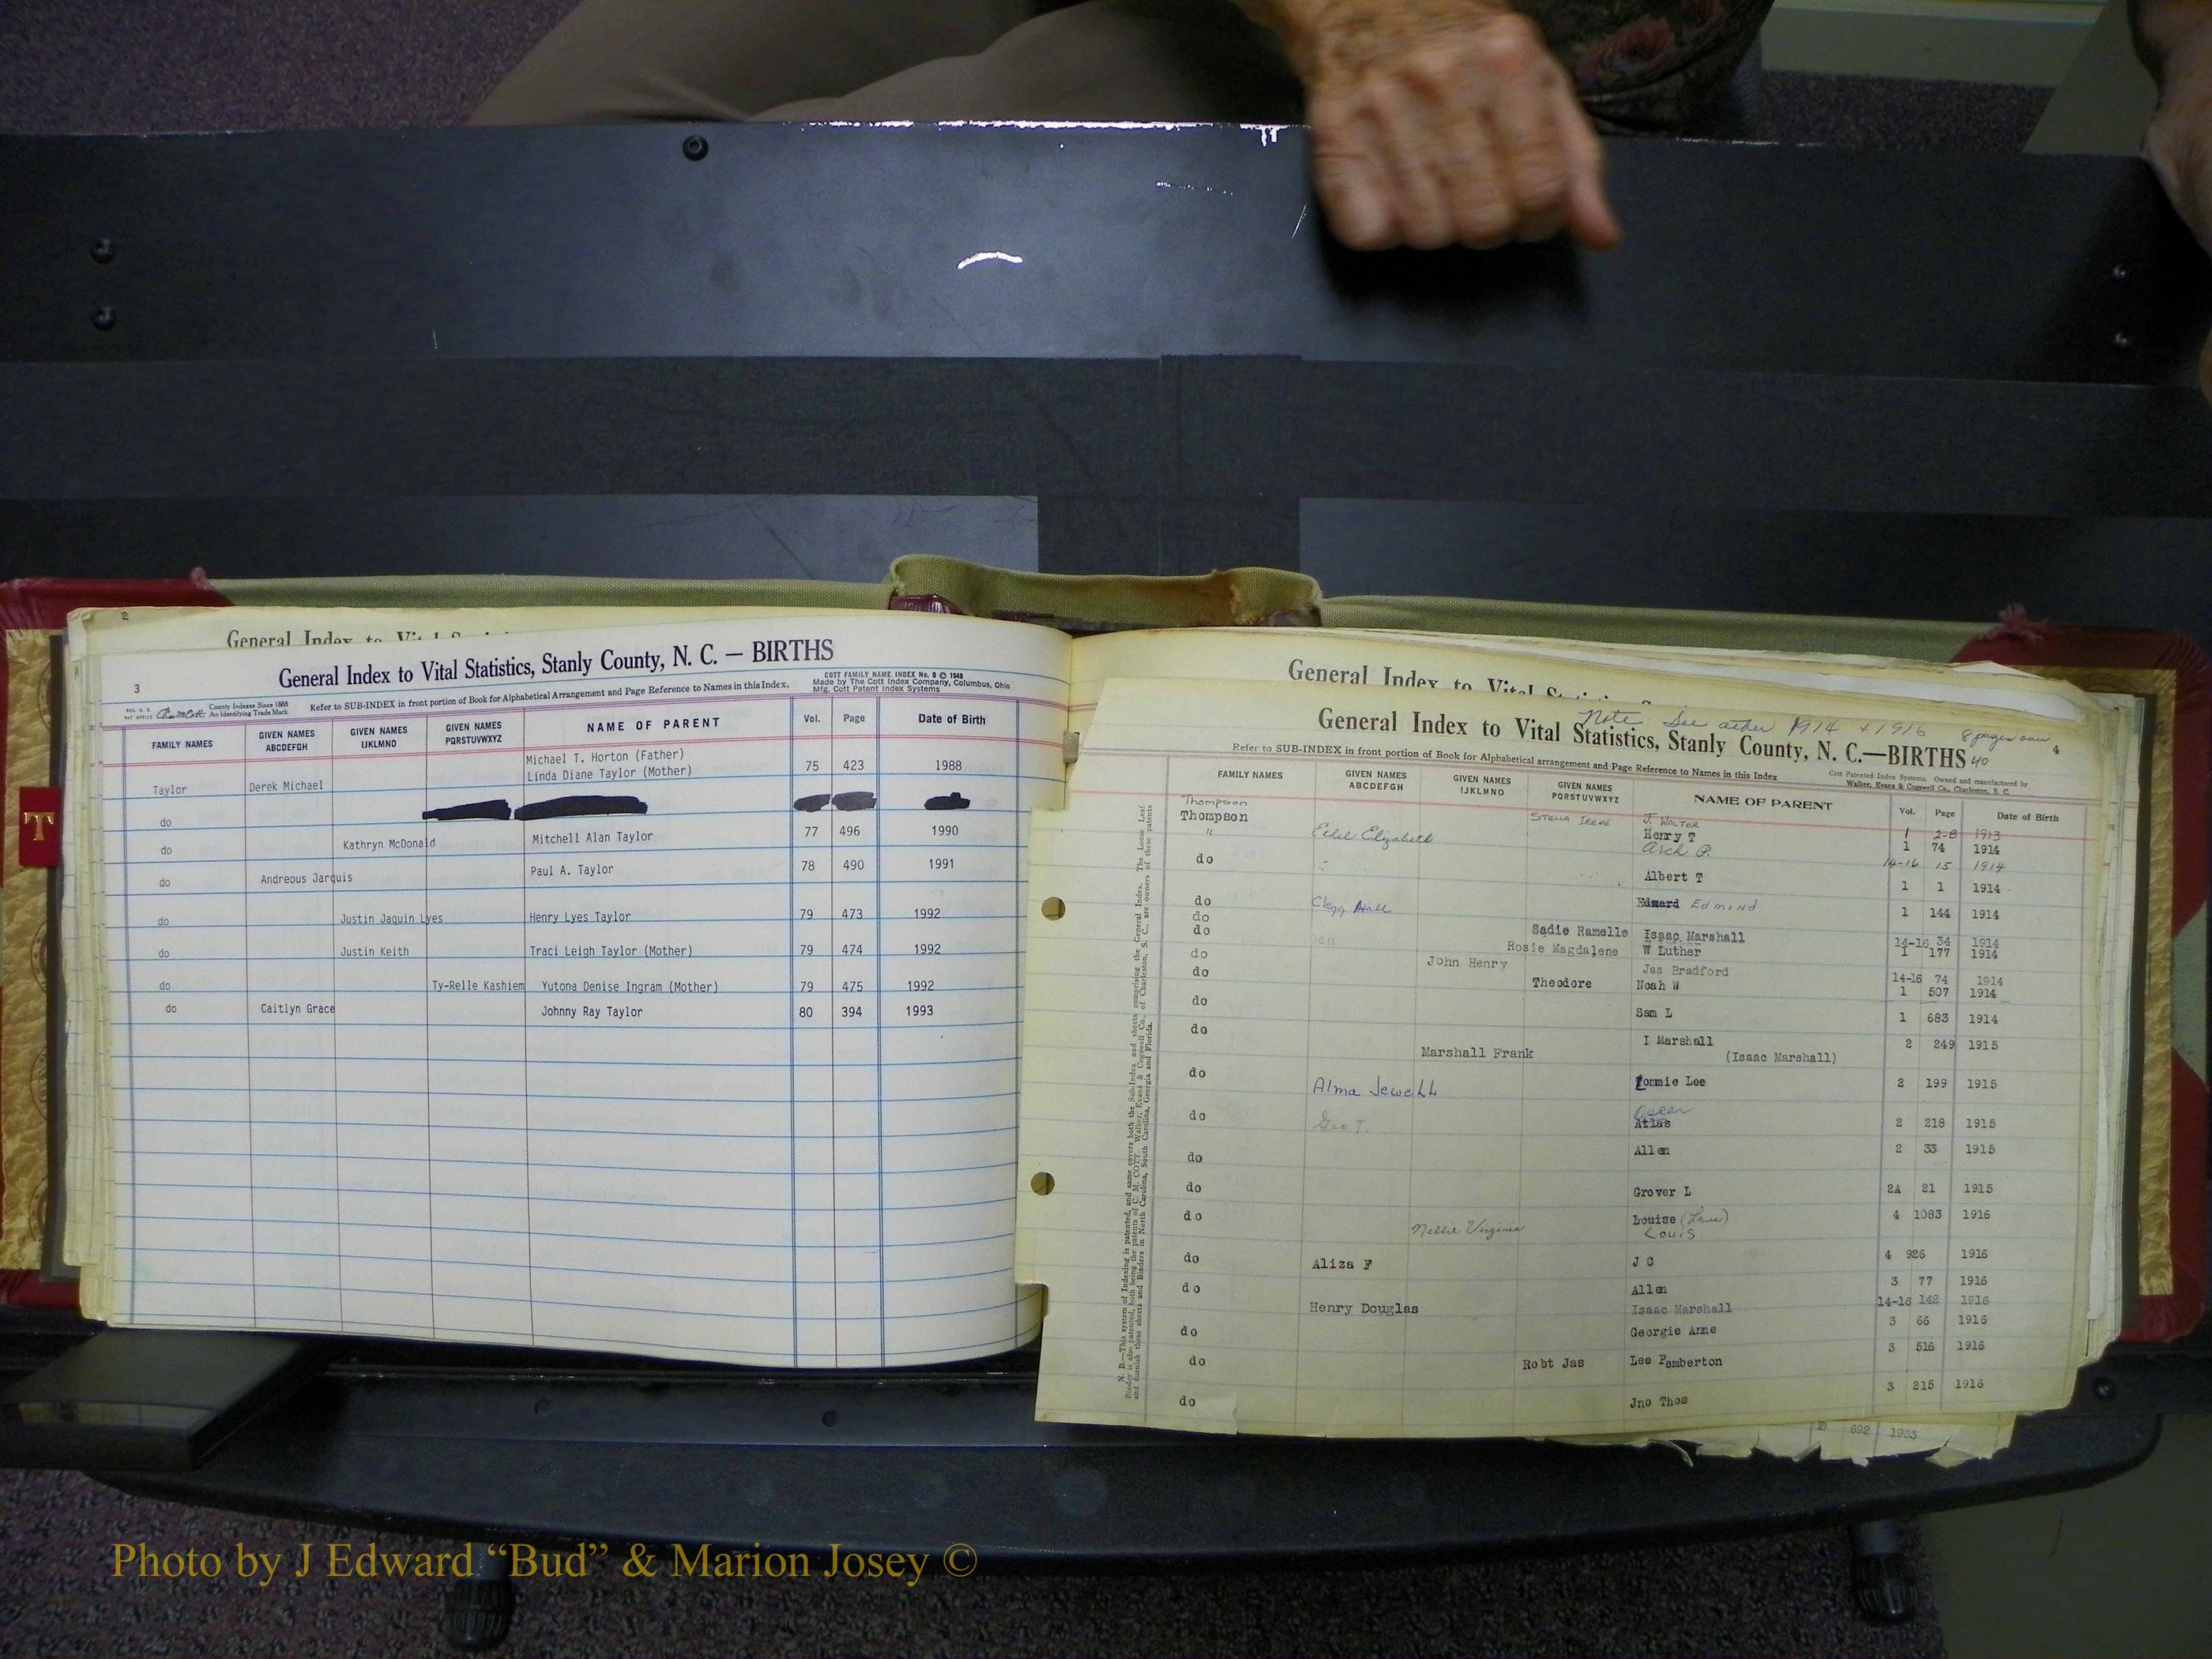 2
General Index to Vital
General Index to Vital Statistics, Stanly County, N. C. — BIRTHS
3
COTT FAMILY NAME INDEX No. 9 © 1949
Made by The Cott Index Company, Columbus, Ohio
Mfg. Cott Patent Index Systems
County Indexes Since 1888
An Identifying Trade Mark
Refer to SUB-INDEX in front portion of Book for Alphabetical Arrangement and Page Reference to Names in this Index.
FAMILY NAMES GIVEN NAMES ABCDEFGH GIVEN NAMES IJKLMNO GIVEN NAMES PQRSTUVWXYZ NAME OF PARENT Vol. Page Date of Birth
Michael T. Horton (Father)
Taylor Derek Michael Linda Diane Taylor (Mother) 75 423 1988
do
do Kathryn McDonald Mitchell Alan Taylor 77 496 1990
do Andreous Jarquis Paul A. Taylor 78 490 1991
do Justin Jaquin Lyes Henry Lyes Taylor 79 473 1992
do Justin Keith Traci Leigh Taylor (Mother) 79 474 1992
do Ty-Relle Kashiem Yutona Denise Ingram (Mother) 79 475 1992
do Caitlyn Grace Johnny Ray Taylor 80 394 1993
T
General Index to Vital
Note See other 1914 + 1916 8 pages over
General Index to Vital Statistics, Stanly County, N. C.—BIRTHS 40
4
Refer to SUB-INDEX in front portion of Book for Alphabetical arrangement and Page Reference to Names in this Index
Cott Patented Index Systems, Owned and manufactured by
Walker, Evans & Cogswell Co., Charleston, S. C.
FAMILY NAMES GIVEN NAMES ABCDEFGH GIVEN NAMES IJKLMNO GIVEN NAMES PQRSTUVWXYZ NAME OF PARENT Vol. Page Date of Birth
Thompson STELLA IRENE J. WALTER 1 1913
Thompson Henry T 1 74 1914
" Ethel Elizabeth Arch P. 14-16 15 1914
do Albert T 1 1 1914
do Clegg Hall Edward Edmond 1 144 1914
do Sadie Ramelle Isaac Marshall 14-16 34 1914
do Rosie Magdalene W Luther 1 177 1914
do John Henry Jas Bradford 14-16 74 1914
do Theodore Noah W 1 507 1914
do Sam L 1 683 1914
do Marshall Frank I Marshall (Isaac Marshall) 2 249 1915
do Alma Jewell Lommie Lee 2 199 1915
do Geo T. Oscar Atlas 2 218 1915
do Allen 2 33 1915
do Grover L 2A 21 1915
do Nellie Virginia Louise Louis 4 1083 1916
do Aliza F J C 4 926 1916
do Allen 3 77 1916
Henry Douglas Isaac Marshall 14-16 142 1916
do Georgie Anne 3 66 1916
do Robt Jas Lee Pemberton 3 516 1916
do Jno Thos 3 215 1916
692 1933
Photo by J Edward “Bud” & Marion Josey ©